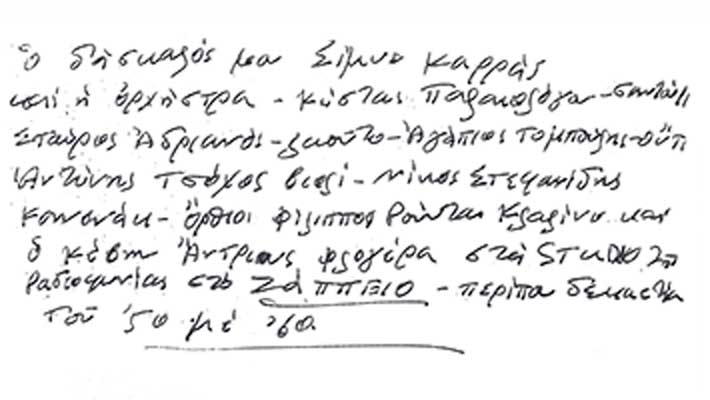 Ὁ δάσκαλός μου Σίμων Καρράς
καί ἡ ὀρχήστρα - Κώστας Παλαιολόγου - σαντούρι
Σταῦρος Ἀδριανός - λαοῦτο - Ἀγάπιος Τομπούλης - οὔτι
Ἀντώνης Τσόχος βιολί - Νίκος Στεφανίδης
Κανονάκι - Ὄρθιοι Φίλιππος Ρούντας Κλαρίνο καί
ὁ Ἀντρίκος φλογέρα στά STUDIO τῆς
Ραδιοφωνίας στό ΖΑΠΠΕΙΟ - περίπου δεκαετία
τοῦ '50 μέ '60.